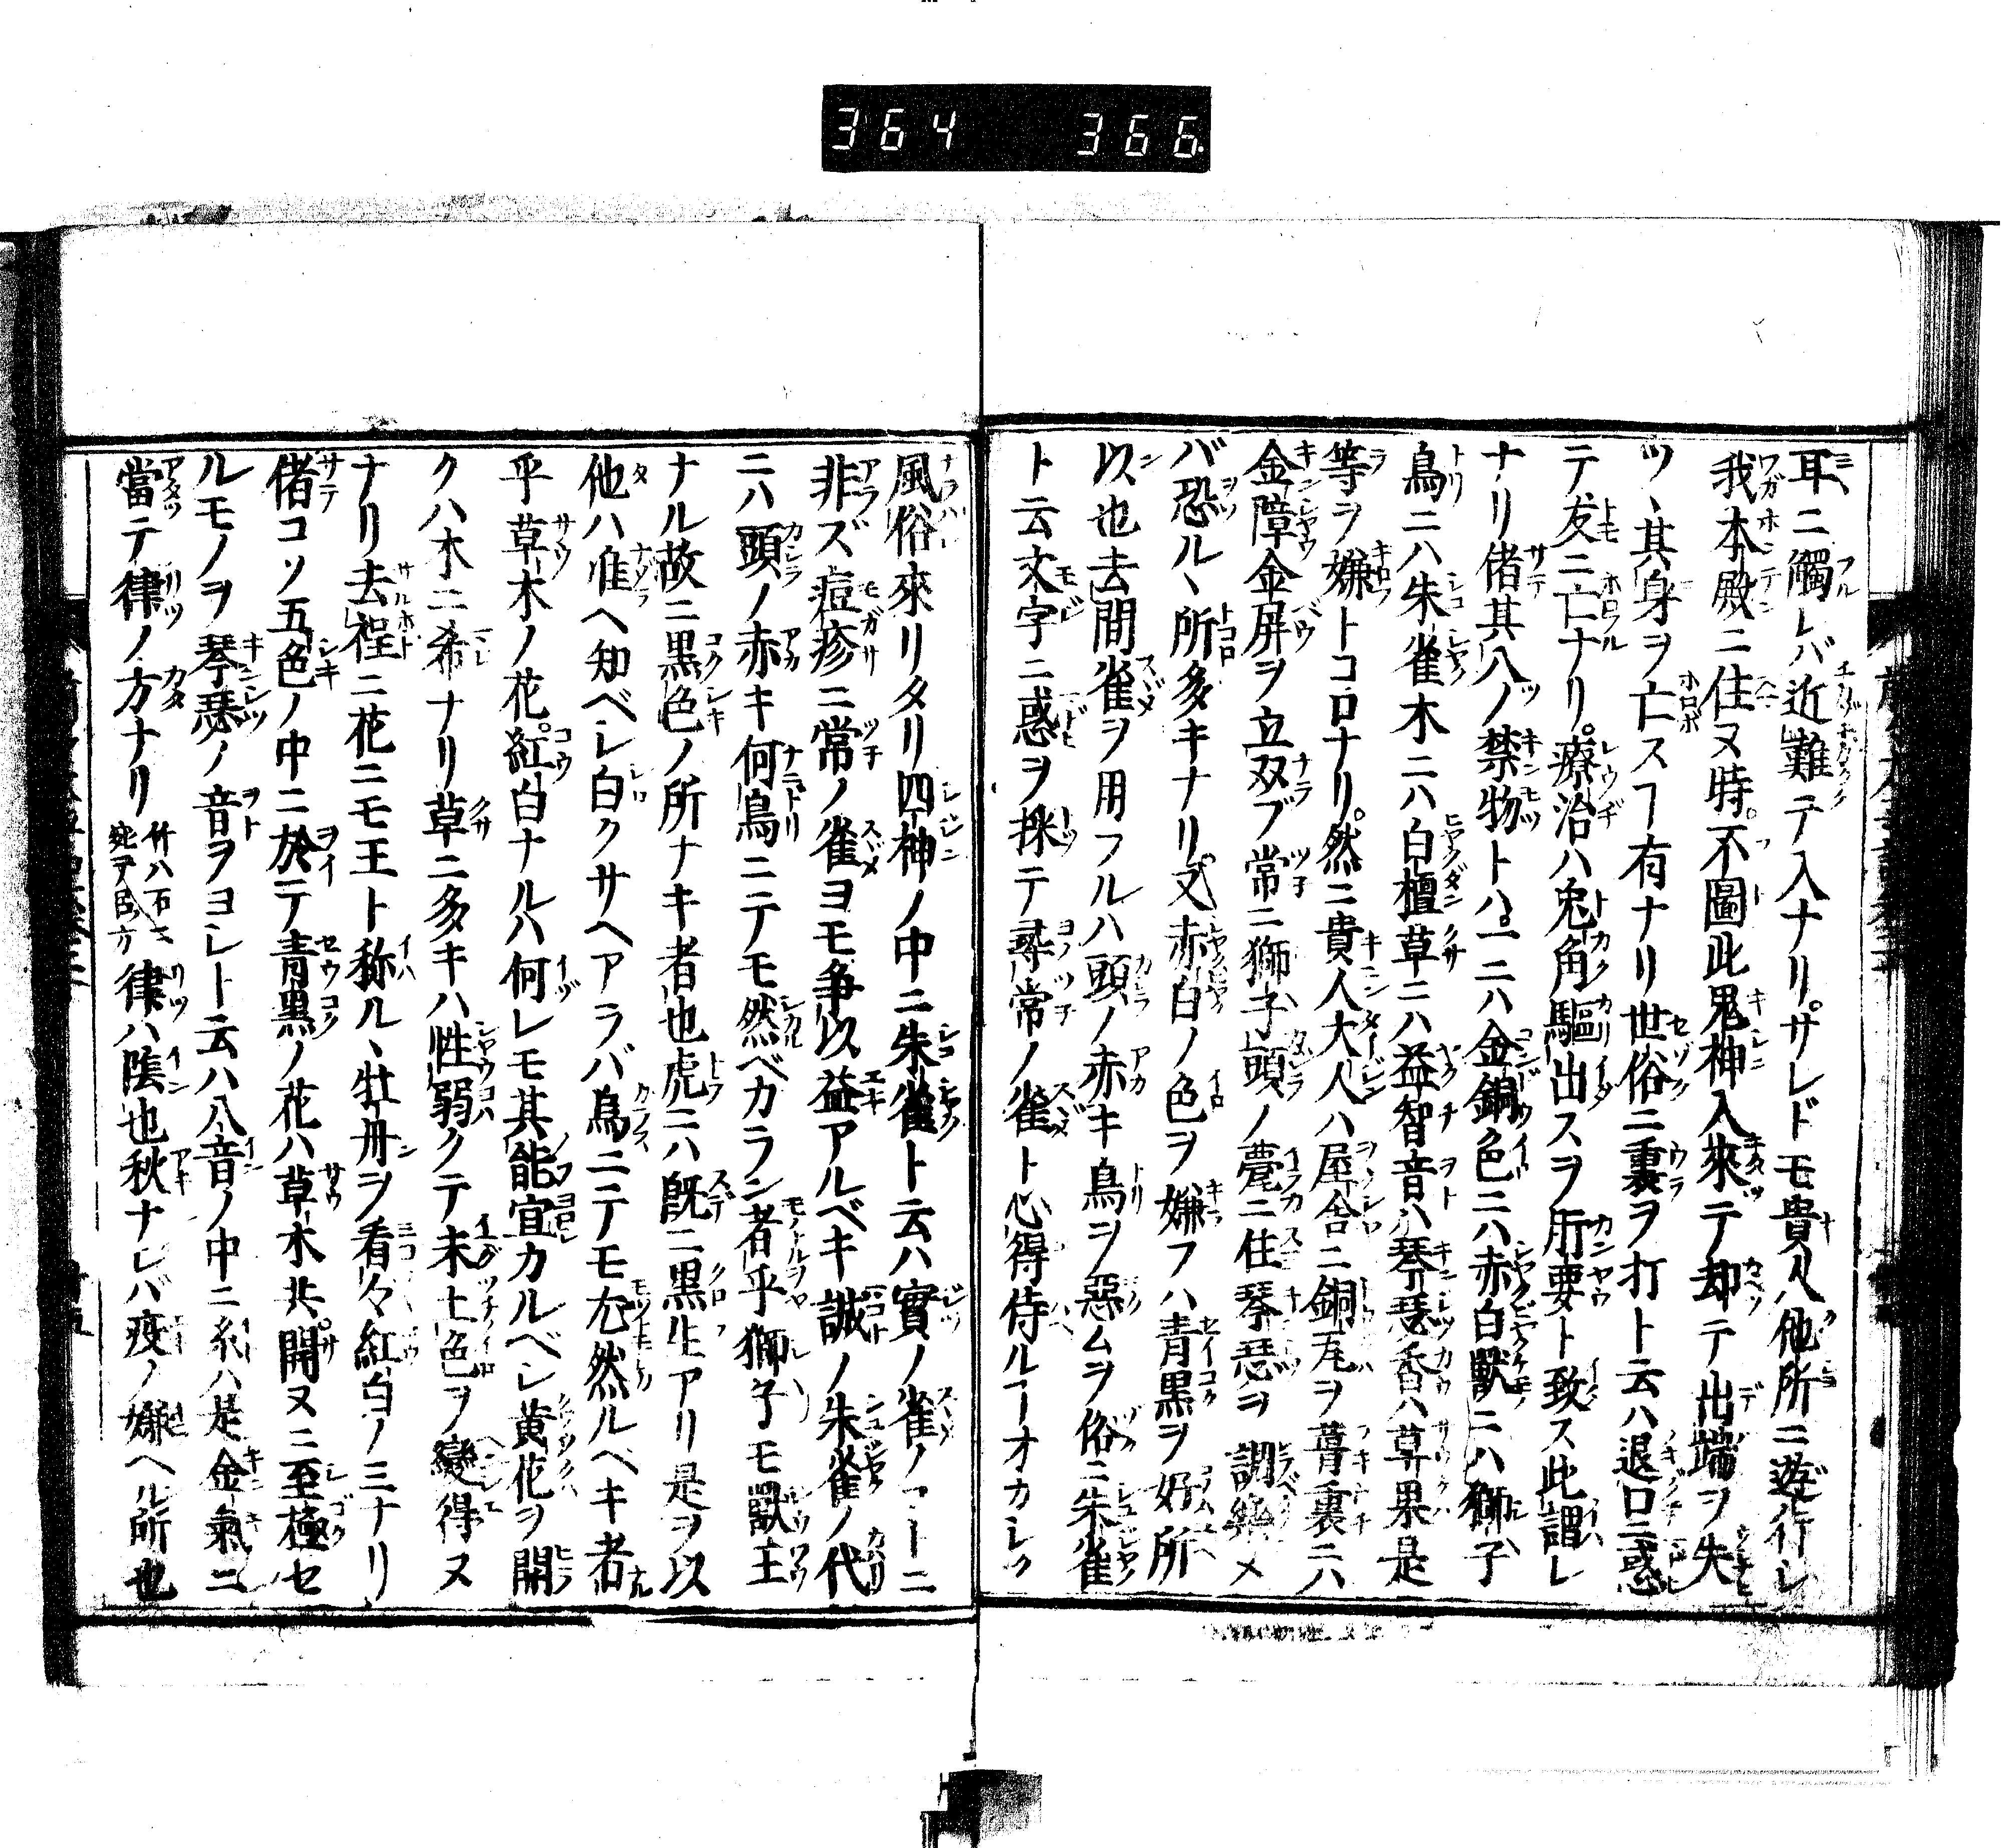 364 366
耳ニ觸レバ近難テ入ナリ。サレドモ貴人他所ニ遊行シ
我本殿ニ住ヌ時。不圖此鬼神入來テ却テ出端ヲ失
ツヽ其身ヲ亡スヿ有ナリ世俗ニ裏ヲ打ト云ハ退口ニ惑
テ友ニ亡ナリ。療治ハ兎角驅出スヲ肝要ト致ス此謂レ
ナリ偖其八ノ禁物トハ。一ニハ金銅色ニハ赤白獸ニハ獅子
鳥ニハ朱雀木ニハ白檀草ニハ益智音ハ琴瑟香ハ草果是
等ヲ嫌トコロナリ。然ニ貴人大人ハ屋舎ニ銅瓦ヲ葺裏ニハ
金障金屏ヲ立双ブ常ニ獅子頭ノ甍ニ住琴瑟ヲ調樂メ
バ恐ルヽ所多キナリ又赤白ノ色ヲ嫌フハ青黒ヲ好所
以也去間雀ヲ用フルハ頭ノ赤キ鳥ヲ惡ムヲ俗ニ朱雀
ト云文字ニ惑ヲ採テ尋常ノ雀ト心得侍ルヿオカシク
風俗來リタリ四神ノ中ニ朱雀ト云ハ實ノ雀ノヿトニ
非ズ痘疹ニ常ノ雀ヨモ争以益アルベキ誠ノ朱雀ノ代
ニハ頭ノ赤キ何鳥ニテモ然ベカラン者乎獅子モ獸王
ナル故ニ黒色ノ所ナキ者也虎ニハ既ニ黒生アリ是ヲ以
他ハ准ヘ知ベシ白クサヘアラバ烏ニテモ尤然ルベキ者
乎草木ノ花。紅白ナルハ何レモ其能宜カルベシ黄花ヲ開
クハ木ニ希ナリ草ニ多キハ性弱クテ未土色ヲ變得ヌ
ナリ去程ニ花ニモ王ト称ルヽ牡丹ヲ看々紅白ノ三ナリ
偖コソ五色ノ中ニ於テ青黒ノ花ハ草木共。開ヌニ至極セ
ルモノヲ琴瑟ノ音ヲヨレト云ハ八音ノ中ニ糸ハ是金氣ニ
當テ律ノ方ナリ律ハ陰也秋ナレバ疫ノ嫌ヘル所也